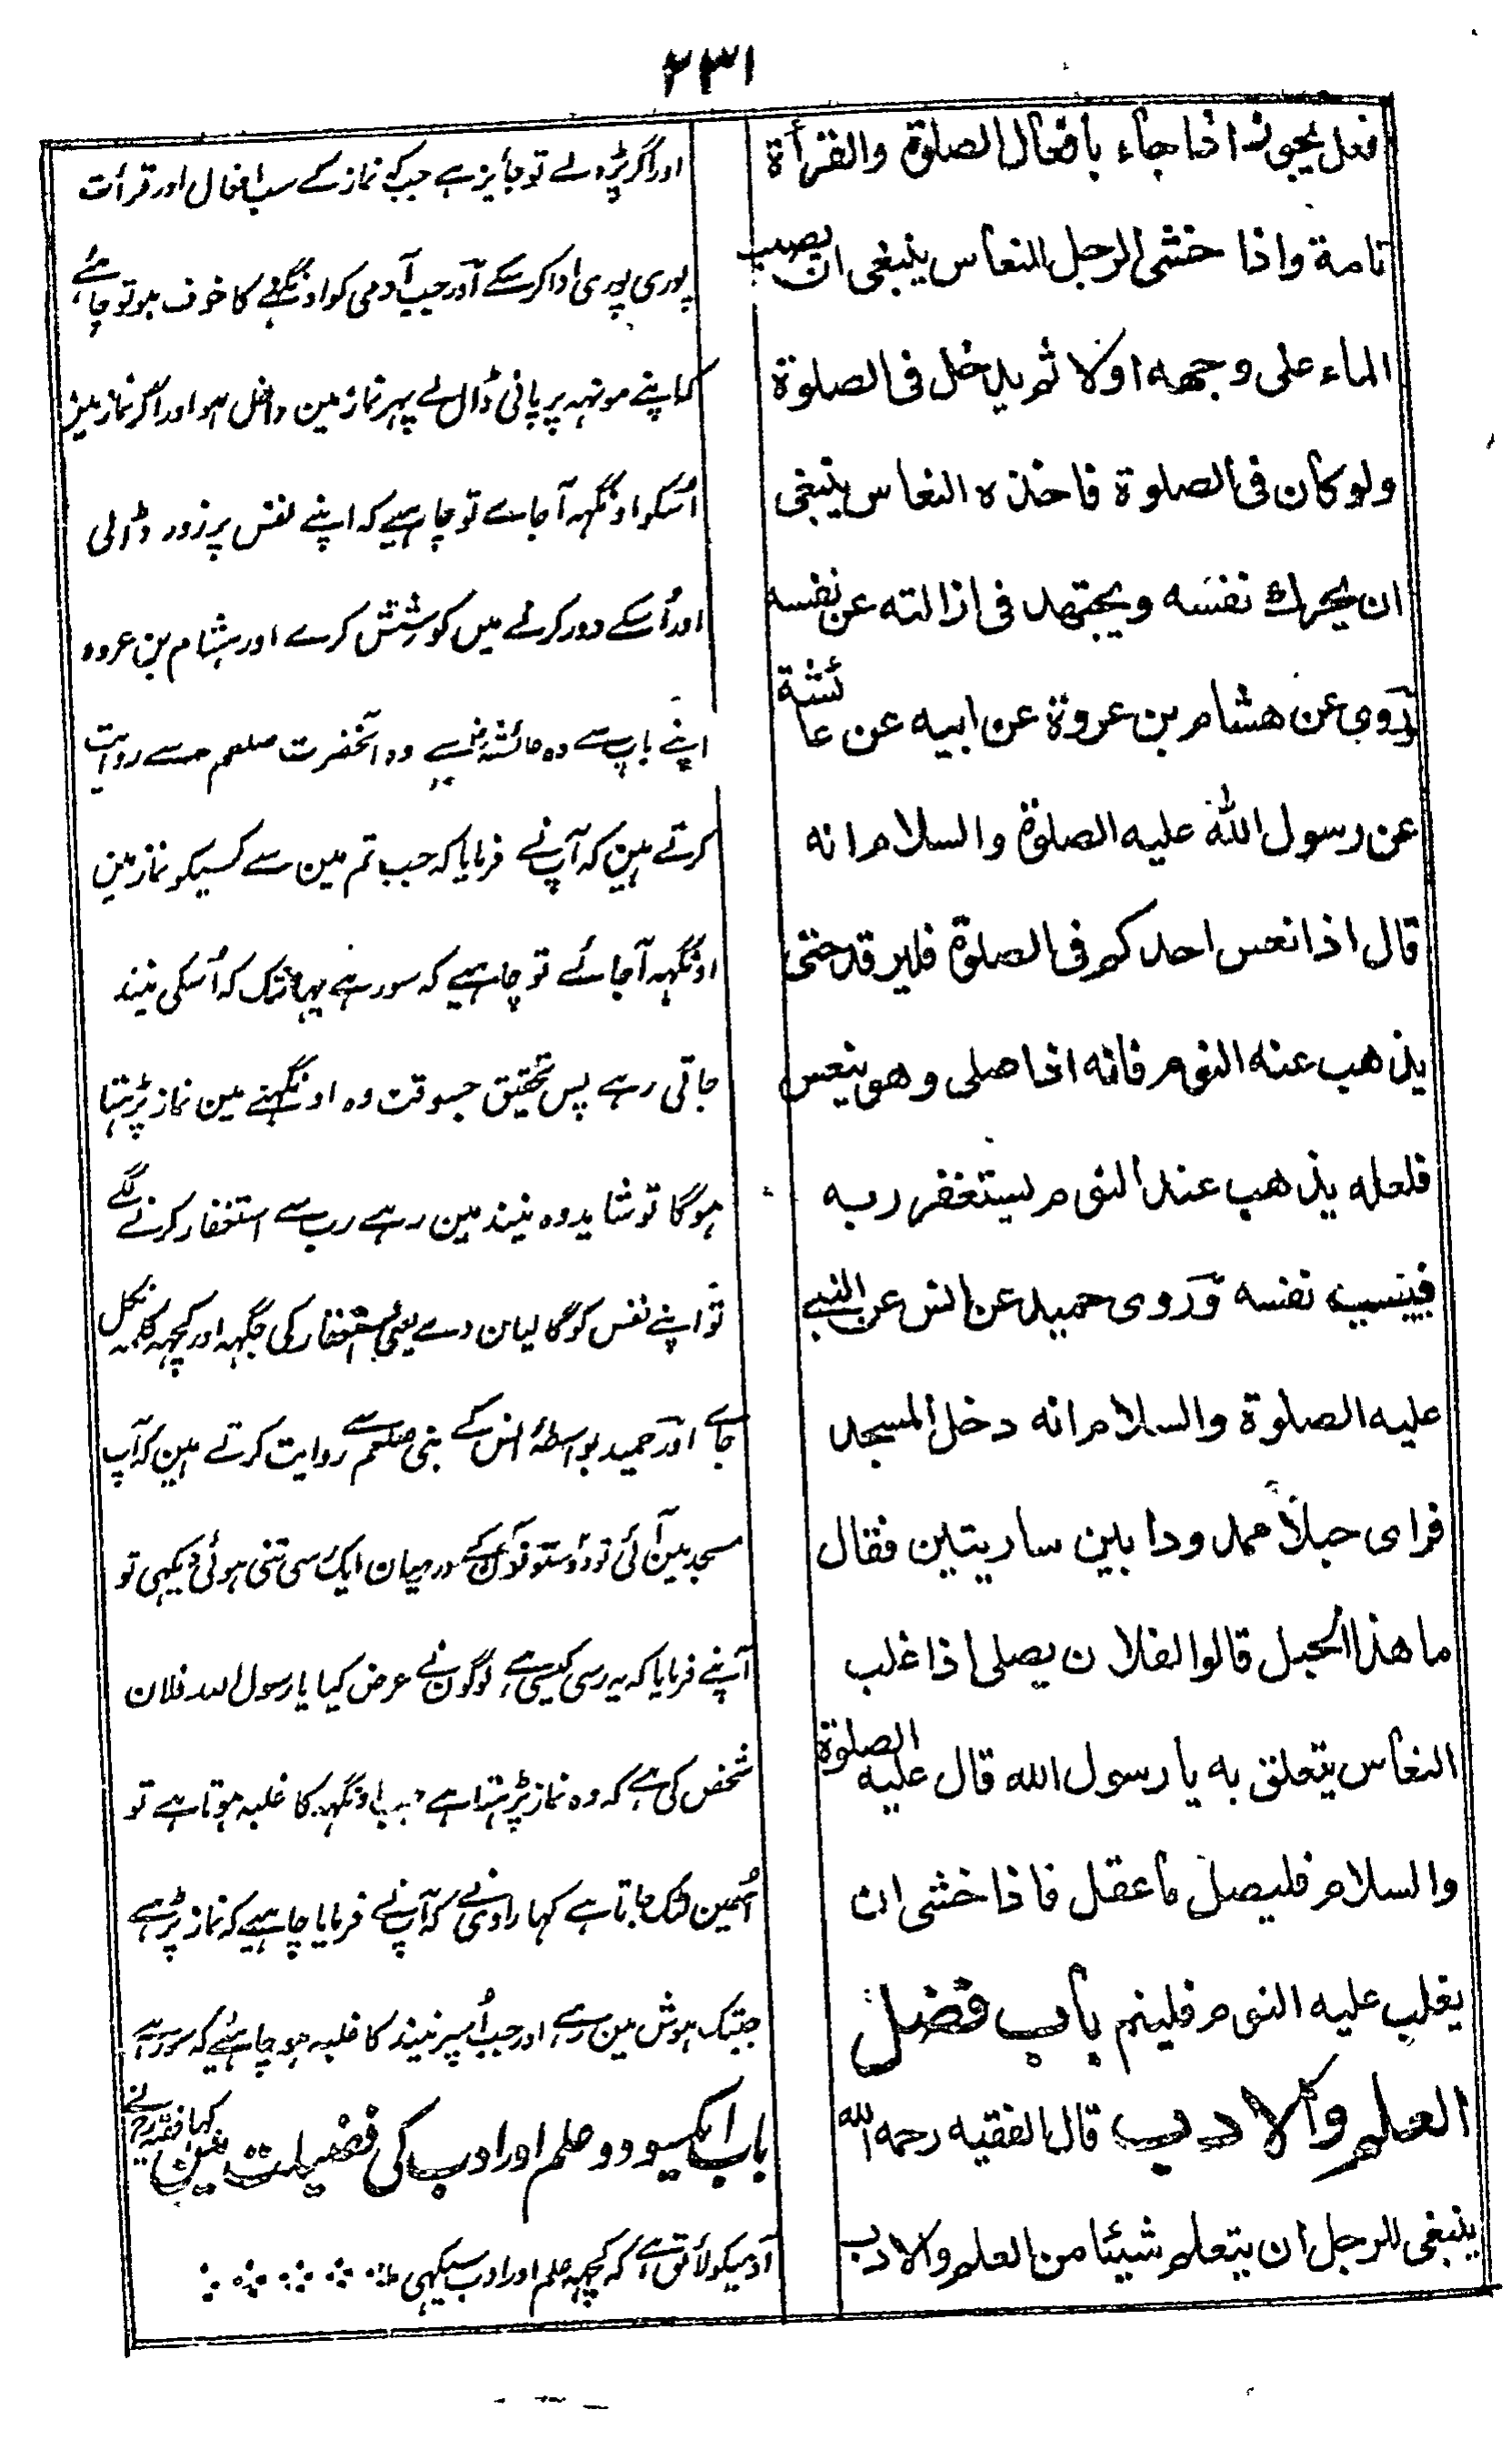 ٢٣١
فعل يجوز اذا جاء بافعال الصلوة والقرأة
تامة واذا خشى الرجل النعاس ينبغى ان يصب
الماء على وجهه اولا ثم يدخل فى الصلوة
ولو كان فى الصلوة فاخذه النعاس ينبغى
ان يحرك نفسه ويجتهد فى ازالته عن نفسه
وروى عن هشام بن عروة عن ابيه عن عائشة
عن رسول الله عليه الصلوة والسلام انه
قال اذا نعس احدكم فى الصلوة فليرقد حتى
يذهب عنه النوم فانه اذا صلى وهو ينعس
فلعله يذهب عند النوم ليستغفر ربه
فيسب نفسه وروى حميد عن انس عن النبى
عليه الصلوة والسلام انه دخل المسجد
فراى حبلا ممدودا بين ساريتين فقال
ما هذا الحبل قالوا لفلان يصلى اذا غلب
النعاس يتعلق به يا رسول الله قال عليه الصلوة
والسلام فليصل ما عقل فاذا خشى ان
يغلب عليه النوم فلينم باب فضل
العلم والادب قال الفقيه رحمه الله
ينبغى للرجل ان يتعلم شيئا من العلم والادب
اور اگر پڑہ لے تو جایز ہے جبکہ نماز کے سب افعال اور قرأت
پوری پوری ادا کر سکے اور جب آدمی کو اونگہنے کا خوف ہو تو چاہئے
کہ اپنے مونہہ پر پانی ڈال لے پہر نماز مین داخل ہو اور اگر نماز مین
اُسکو اونگہہ آجاے تو چاہیے کہ اپنے نفس پر زور ڈالی
اور اُسکے دور کرنے میں کوشش کرے اور ہشام بن عروہ
اپنے باپ سے وہ عائشہ سے وہ آنحضرت صلعم سے روایت
کرتے ہین کہ آپ نے فرمایا کہ جب تم مین سے کسیکو نماز مین
اونگہہ آجائے تو چاہیے کہ سو رہے یہانتک کہ اُسکی نیند
جاتی رہے پس تحقیق جسوقت وہ اونگہنے مین نماز پڑہتا
ہوگا تو شاید وہ نیند مین رہے رب سے استغفار کرنے لگے
تو اپنے نفس کو گالیان دے یعنی استغفار کی جگہہ اور کچہہ کلمہ نکل
جاے اور حمید بواسطۂ انس کے نبی صلعم سے روایت کرتے ہین کہ آپ
مسجد مین آئی تو دو ستونون کے درمیان ایک رسی تنی ہوئی دیکہی تو
آپنے فرمایا کہ یہ رسی کیسی ہے لوگون نے عرض کیا یا رسول اللہ فلان
شخص کی ہے کہ وہ نماز پڑہتا ہے جب اونگہہ کا غلبہ ہوتا ہے تو
اُسمین لٹک جاتا ہے کہا راوی نے کہ آپ نے فرمایا چاہیے کہ نماز پڑہے
جبتک ہوش مین رہے اور جب اُسپر نیند کا غلبہ ہو چاہئے کہ سو رہے
باب ایکسو دو علم اور ادب کی فضیلت مین کہا فقیہ رح نے
آدمیکو لائق ہے کہ کچہہ علم اور ادب سیکہی